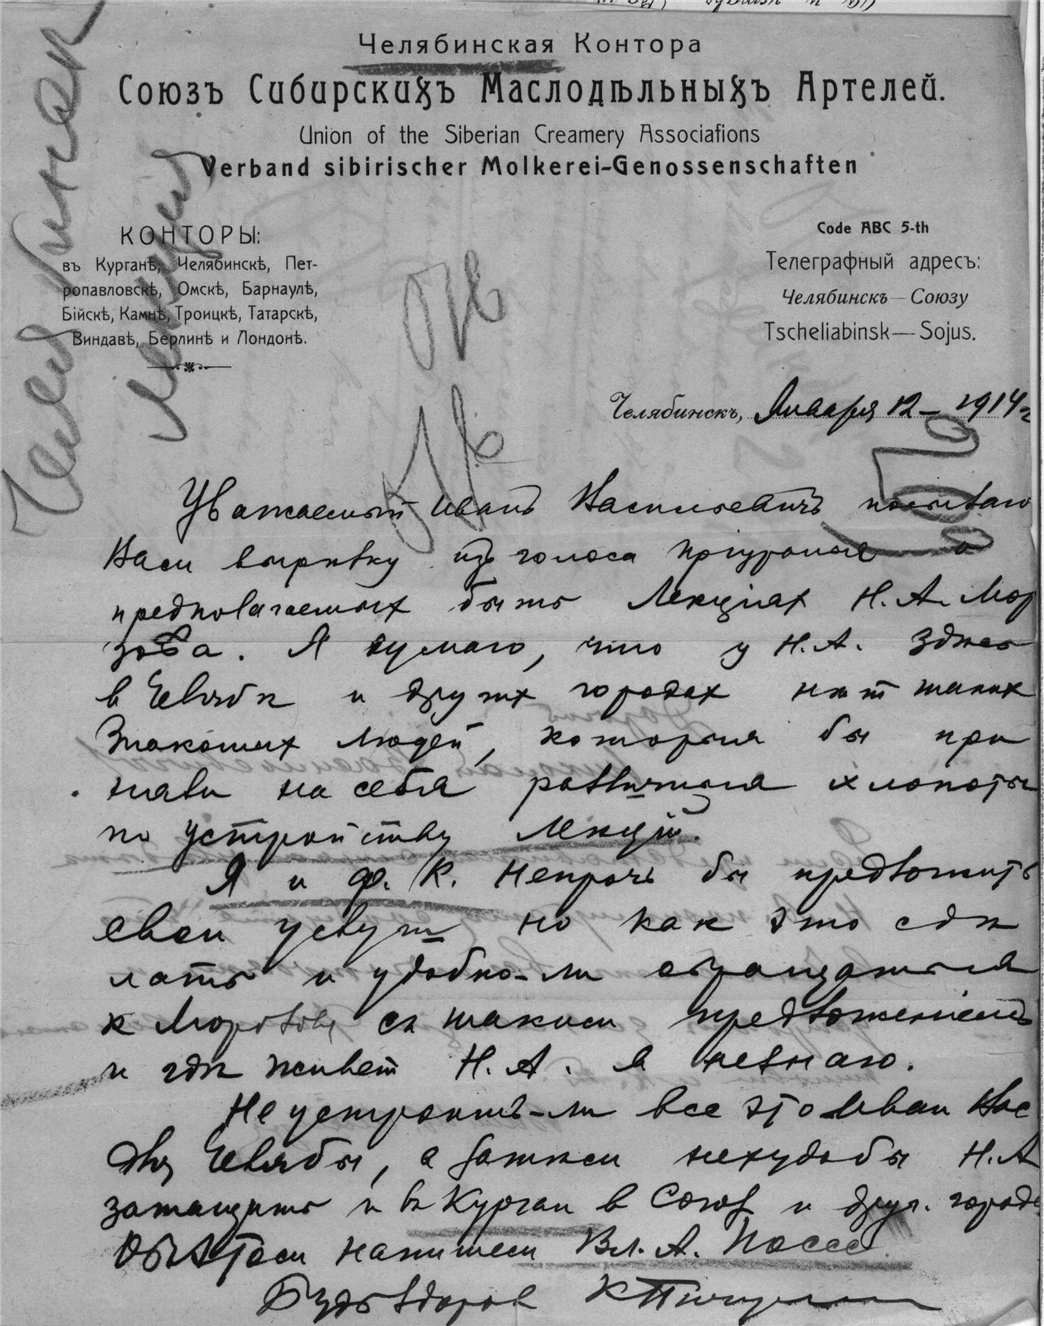 Челябинская Контора
Союзъ Сибирскихъ Маслодѣльныхъ Артелей.
Union of the Siberian Creamery Associations
Verband sibirischer Molkerei-Genossenschaften
КОНТОРЫ:
въ Курганѣ, Челябинскѣ, Пет-
ропавловскѣ, Омскѣ, Барнаулѣ,
Бійскѣ, Камнѣ, Троицкѣ, Татарскѣ,
Виндавѣ, Берлинѣ и Лондонѣ.
Code ABC 5-th
Телеграфный адресъ:
Челябинскъ — Союзу
Tscheliabinsk — Sojus.
Челябинскъ, Января 12 – 1914 г
Уважаемый Иванъ Васильевичъ посылаю
Вам вырѣзку изъ голоса Приуралья о
предполагаемых быть Лекціях Н. А. Мор
зова. Я думаю, что у Н. А. здѣсь
в Челябѣ и других городах нѣт таких
Знакомых людей, которыя бы при
няли на себя различныя хлопоты
по устройству лекцій.
Я и Ф. К. Непрочь бы предложить
свои услуги но как это сдѣ
лать и удобно-ли обращаться
к Морозову съ таким предложеніем
и гдѣ живет Н. А. я незнаю.
Неустроить-ли все это Иван Вас
для Челябы, а затем нехудобы Н. А
затащить и въ Курган в Союз и друг. город
Об этом напишем Вл. А. Поссе.
Будь здоров К
Челябинск
лекции